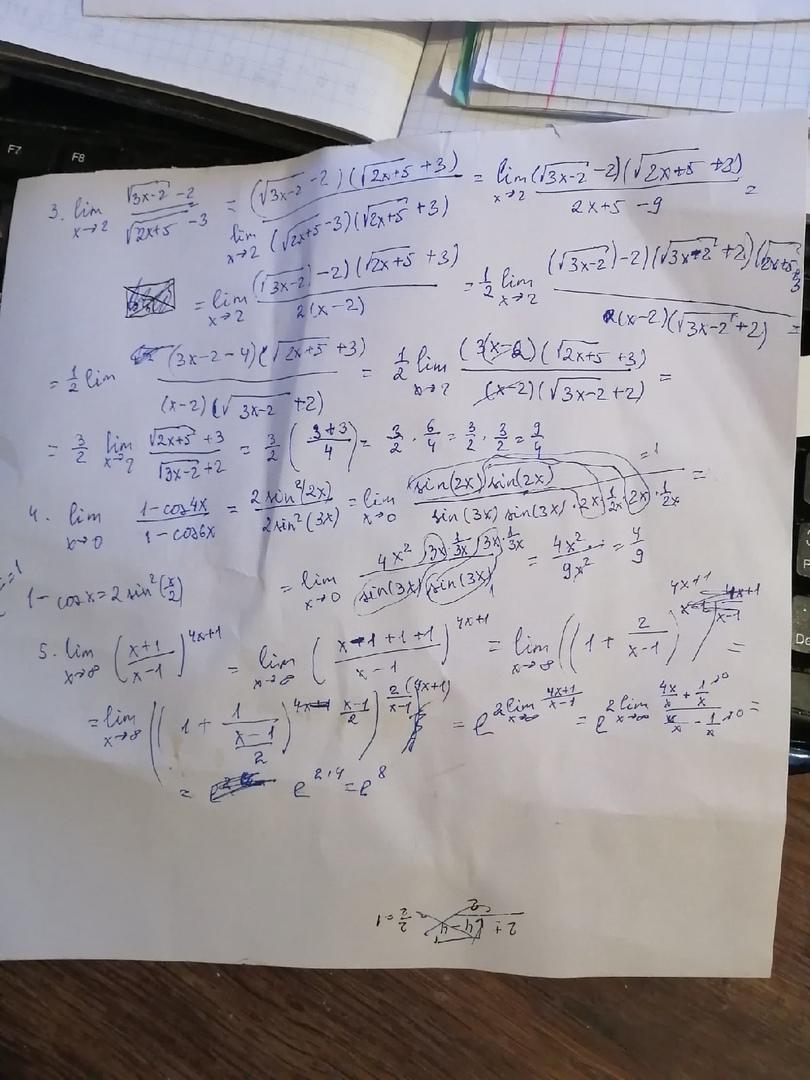 F7 F8
3. lim x→2 (√(3x-2) -2)/(√(2x+5) -3) = lim x→2 ((√(3x-2) -2)(√(2x+5) +3))/((√(2x+5) -3)(√(2x+5) +3)) = lim x→2 ((√(3x-2) -2)(√(2x+5) +3))/(2x+5 -9) =
= lim x→2 ((√(3x-2) -2)(√(2x+5) +3))/(2(x-2)) = 1/2 lim x→2 ((√(3x-2) -2)(√(3x-2) +2)(√(2x+5) +3))/((x-2)(√(3x-2) +2)) =
= 1/2 lim ((3x-2-4)(√(2x+5) +3))/((x-2)(√(3x-2) +2)) = 1/2 lim x→2 (3(x-2)(√(2x+5) +3))/((x-2)(√(3x-2) +2)) =
= 3/2 lim x→2 (√(2x+5) +3)/(√(3x-2) +2) = 3/2 ((3+3)/4) = 3/2 · 6/4 = 3/2 · 3/2 = 9/4
4. lim x→0 (1-cos4x)/(1-cos6x) = (2sin²(2x))/(2sin²(3x)) = lim x→0 (sin(2x) sin(2x))/(sin(3x) sin(3x)) · 2x · 1/2x · 2x · 1/2x = =1
=1 1-cosx=2sin²(x/2) = lim x→0 (4x² 3x · 1/3x · 3x · 1/3x)/(sin(3x) sin(3x)) 1 = 4x²/9x² = 4/9
5. lim x→∞ ((x+1)/(x-1))^(4x+1) = lim x→∞ ((x-1+1+1)/(x-1))^(4x+1) = lim x→∞ ((1 + 2/(x-1)))^(4x+1) =
= lim x→∞ ((1 + 1/((x-1)/2))^((x-1)/2))^(2/(x-1) (4x+1)) = e^(2 lim x→∞ (4x+1)/(x-1)) = e^(2 lim x→∞ (4x/x + 1/x →0)/(x/x - 1/x →0)) =
= e^(2·4) = e^8